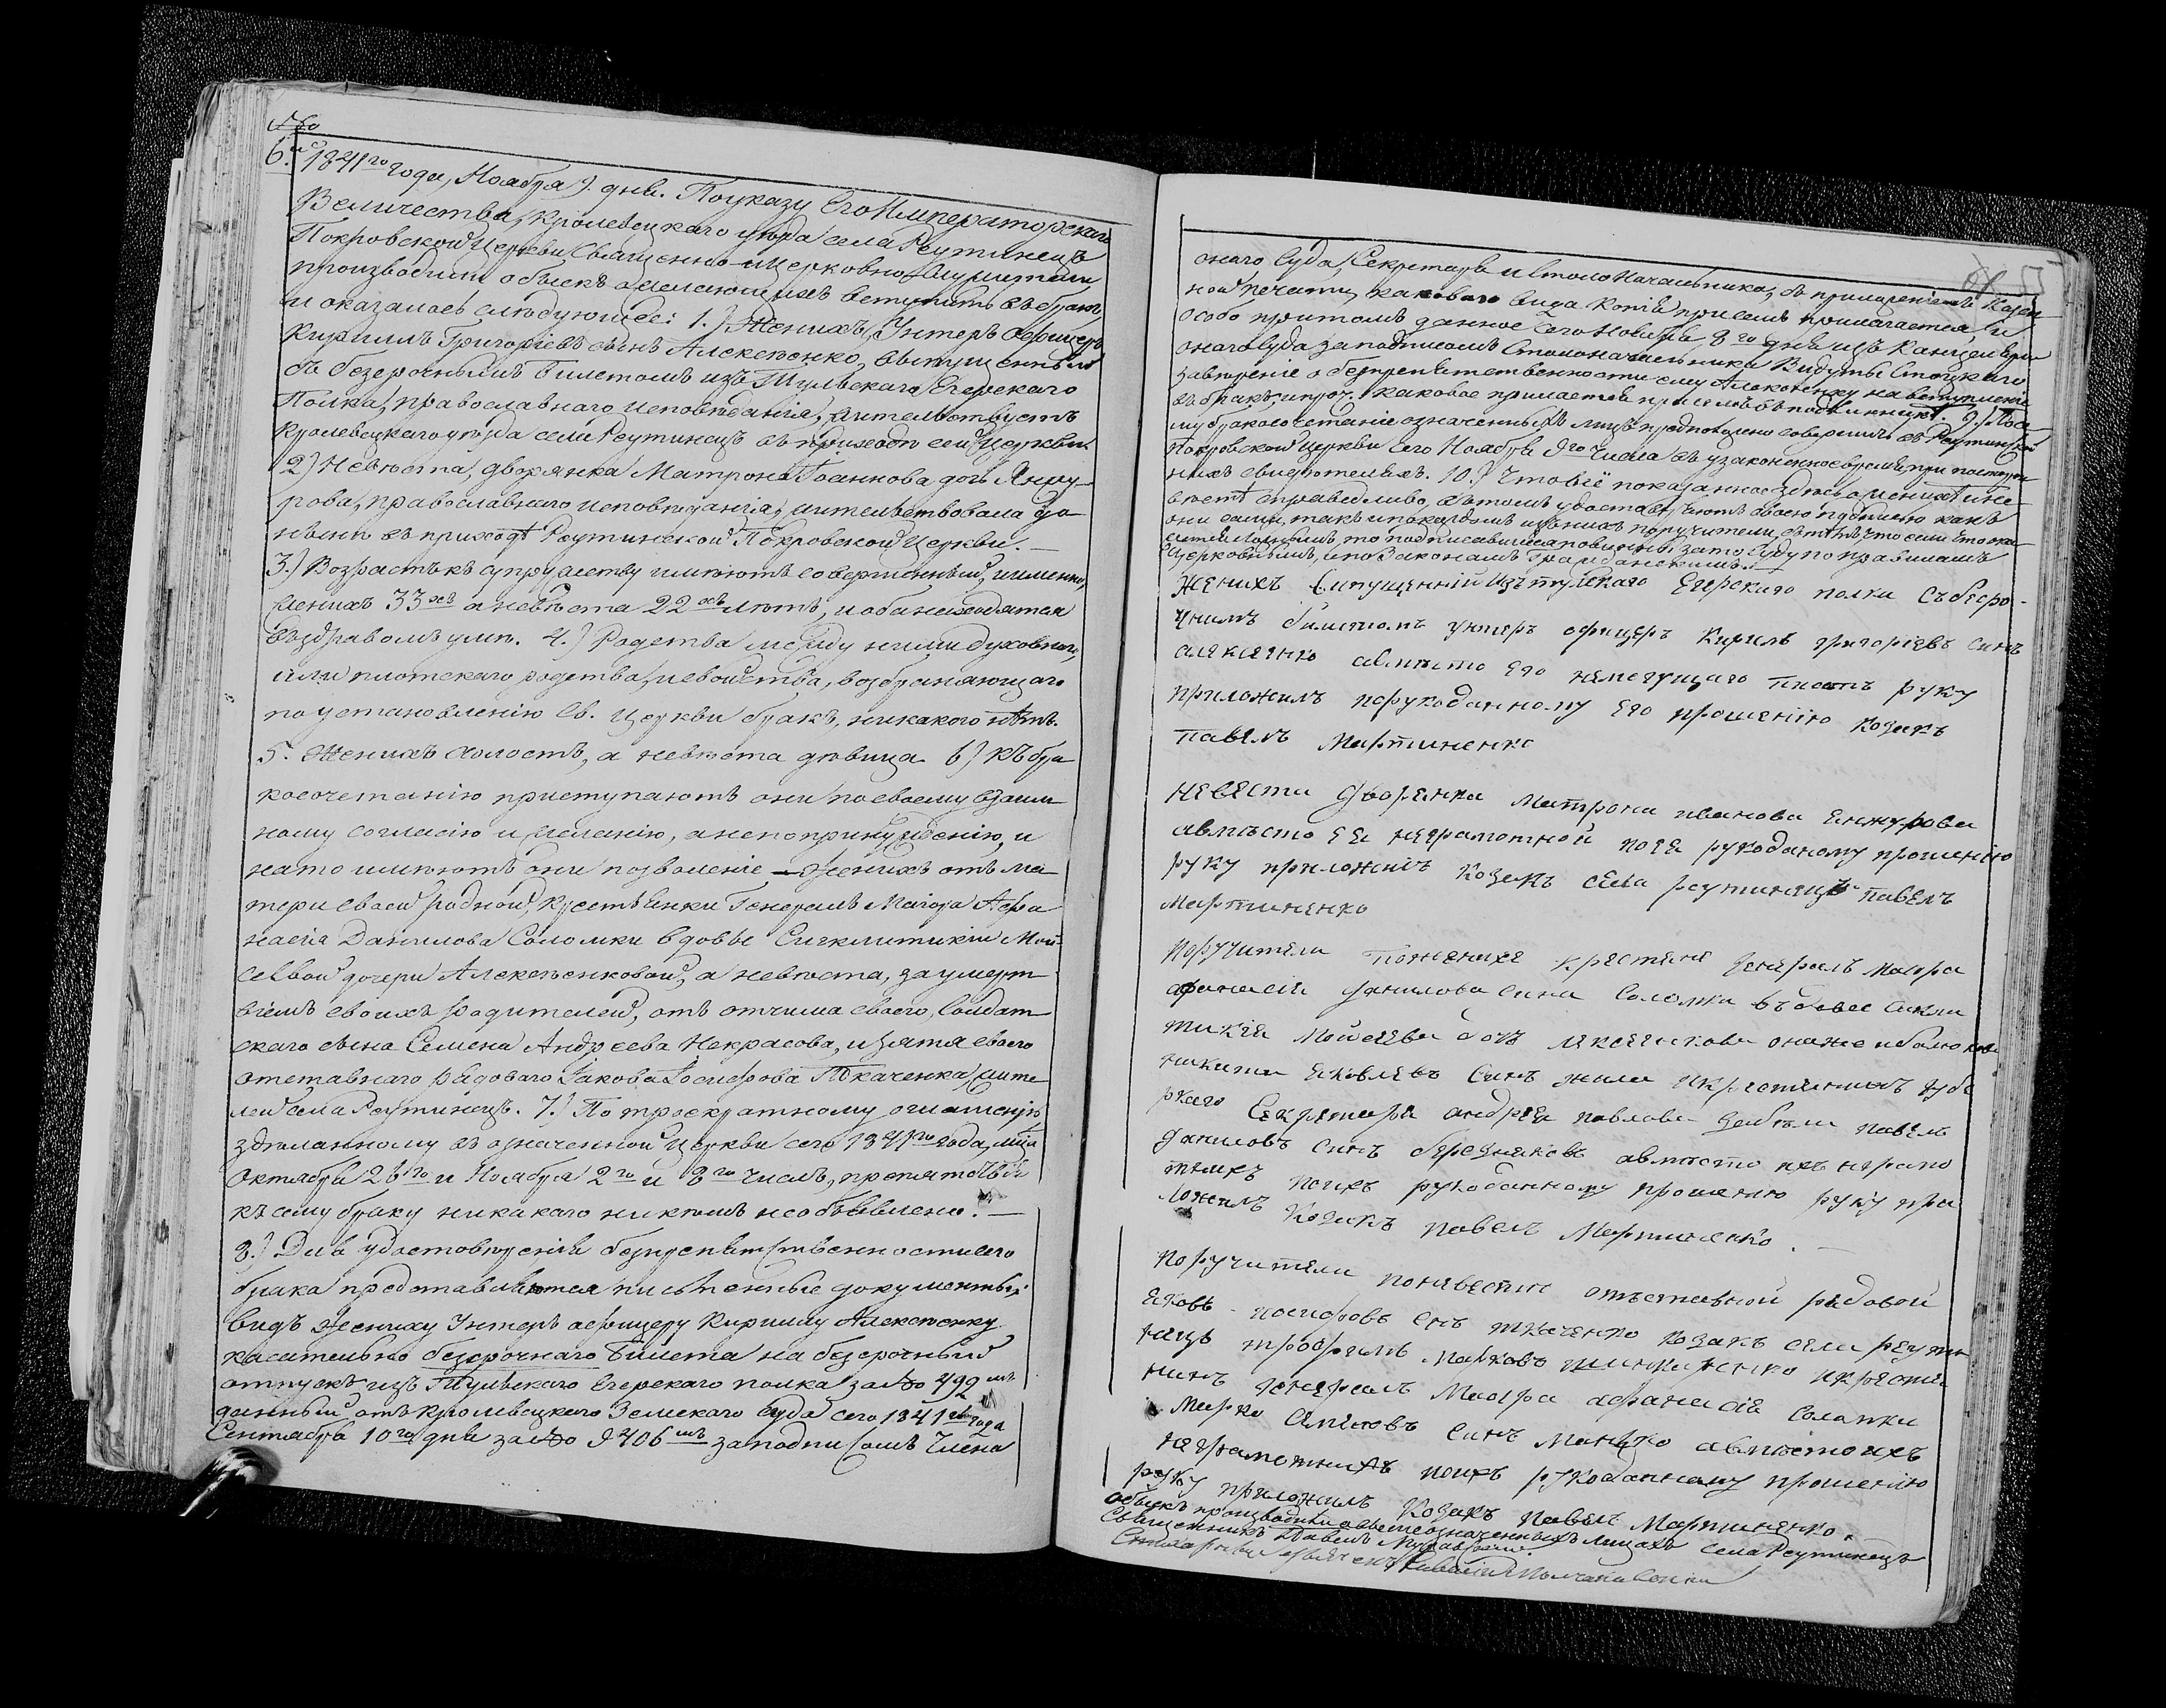 №
6.й 1841го года, Ноября 9. дня. По указу Его Императорскаго
Величества, Кролевецкаго уѣзда села Реутинецъ
Покровской Церкви Священно и Церковнослужители
производили обыскъ о желающихъ вступить въ бракъ,
и оказалось слѣдующее: 1.) Женихъ, Унтеръ Офицеръ
Кириллъ Григоріевъ сынъ Алексѣенко, выпущенный
съ безсрочнымъ билетомъ изъ Тульскаго Егерскаго
Полка, православнаго исповѣданія, жительствуетъ
Кролевецкаго уѣзда села Реутинецъ въ приходѣ сей Церкви.
2.) Невѣста, дворянка Матрона Іоаннова дочь Янжу-
рова, православнаго исповѣданія, жительствовала до
нынѣ въ приходѣ Реутинской Покровской Церкви. —
3.) Возрастъ къ супружеству имѣютъ совершенный, именно,
женихъ 33хъ а невѣста 22хъ лѣтъ, и оба находятся
въ здравомъ умѣ. 4.) Родства между ними духовнаго,
или плотскаго родства, и свойства, возбраняющаго
по установленію Св. Церкви бракъ, никакого нѣтъ.
5. Женихъ холостъ, а невѣста дѣвица. 6.) Къ бра
косочетанію приступаютъ они по своему взаим
ному согласію и желанію, а не по принужденію, и
на то имѣютъ они позволеніе — женихъ отъ ма
тери своей родной, крестьянки Генералъ Маіора Афа
насія Данилова Соломки вдовы Сигклитикіи Мой-
сеевой дочери Алексѣенковой, а невѣста, за умерт
віемъ своихъ родителей, отъ отчима своего, Солдат
скаго сына Семена Андреева Некрасова, и зятя своего
отставнаго рядоваго Іакова Іосифова Ткаченка, жите
лей села Реутинецъ. 7.) По троекратному оглашенію,
здѣланному въ означенной Церкви сего 1841го года, мца
Октября 26го и Ноября 2го и 8го числъ, препятствія
къ сему браку никакого никѣмъ не объявлено. —
8.) Для удостовѣренія безпрепятственности сего
брака представляются письменные документы:
видъ жениху Унтеръ офицеру Кириллу Алексѣенку
касательно безсрочнаго билета на безсрочный
отпускъ изъ Тульскаго Егерскаго полка за № 492мъ
данный отъ Кролевецкаго Земскаго Суда сего 1841го года
Сентября 10го дня за № 9406мъ за подписомъ Члена
онаго Суда, Секретаря и Столоначальника, съ приложеніемъ Казен
ной печати, каковаго вида копія при семъ прилагается, и
особо при томъ данное сего Ноября 8го дня изъ Канцеляріи
онаго Суда за подписомъ Столоначальника Стоцкаго
завѣреніе о безпрепятственности ему Алексѣенку на вступленіе
въ бракъ, и проч. каковое прилагается при семъ въ подлинникѣ. 9.) По се-
му бракосочетаніе означенныхъ лицъ предположено совершить въ Реутинской
Покровской Церкви сего Ноября 9го числа въ узаконенное время, при посторон
нихъ свидѣтеляхъ. 10.) Что все показанное здѣсь о женихѣ и не
вѣстѣ справедливо, въ томъ удостовѣряютъ своею подписью какъ
они сами, такъ и по каждомъ изъ нихъ поручители, съ тѣмъ, что если что ока-
жется ложнымъ, то подписавшіеся повинны за то суду по правиламъ
Церковнымъ, и по Законамъ Гражданскимъ.
Женихъ випущенний изъ тулскаго Егерскаго полка съ безро-
чнимъ билетомъ унтеръ офицеръ Кирилъ григоріевъ синъ
алексеенко авмѣсто его немогущаго писать руку
приложилъ порукоданному Его прошению козакъ
Павелъ Мартиненко
Невеста дворянка Матрона иванова Енжурова
авмѣсто ЕЯ неграмотной поЕя рукоданому прошенію
руку приложилъ козакъ села реутинецъ Павелъ
Мартиненко
Поручители пожениху крестяне генералъ маіора
афанасія данилова сина Соломки вдова Сикли
тикія Мойсеева дочъ Алексеенкова
никита Яковлевъ синъ и крестянинъ губе
рскаго Секретаря андрея павлова павелъ
даниловъ синъ авмѣсто ихъ неграмо
тнихъ поихъ рукоданному прошению руку при
ложилъ козакъ павелъ Мартиненко. —
Поручители поневестѣ отъставной рядовой
Яковъ иосифовъ снъ ткаченко козакъ села реути
нецъ трофимъ Марковъ и крестя
нинъ генералъ Маіора афанасія Соломки
Марко синъ авмѣсто ихъ
неграмотнихъ поихъ рукоданному прошению
руку приложилъ козакъ павелъ Мартиненко.
Обыскъ производили о вышеозначенныхъ лицахъ села Реутинецъ
Священникъ Павелъ